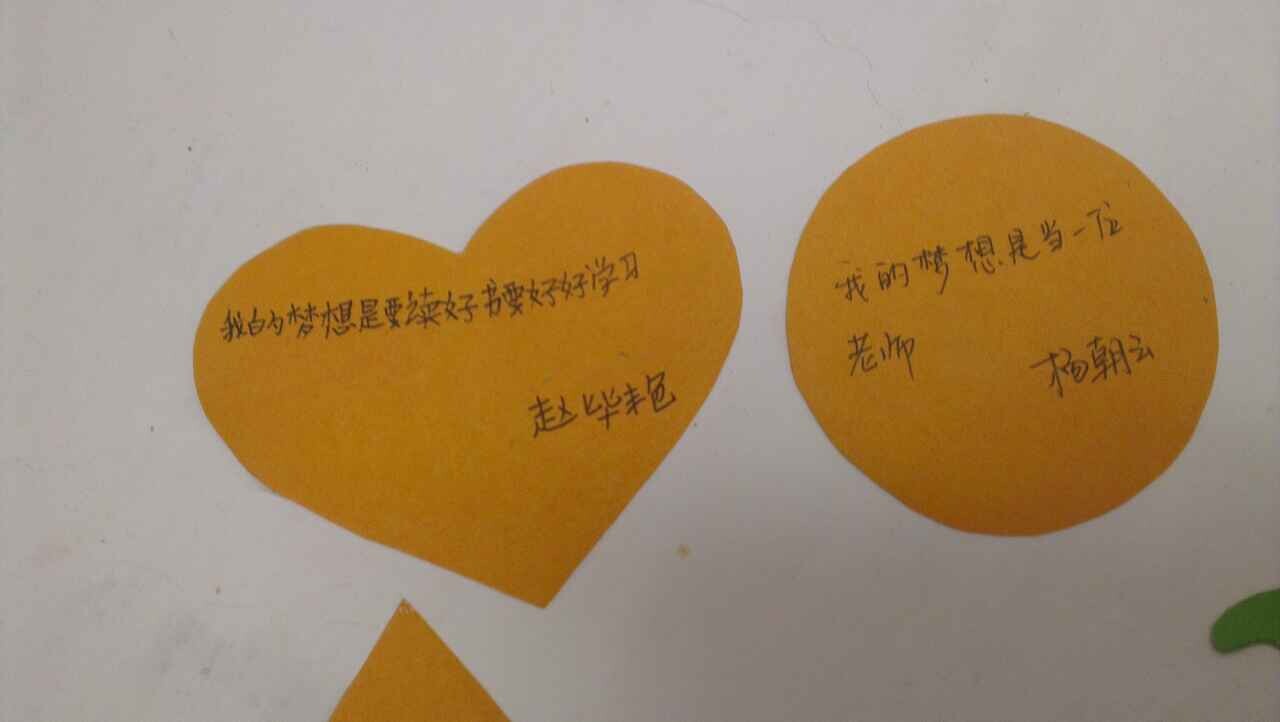 我的梦想是要读好书要好好学习
赵毕艳
我的梦想是当一位
老师
杨朝云